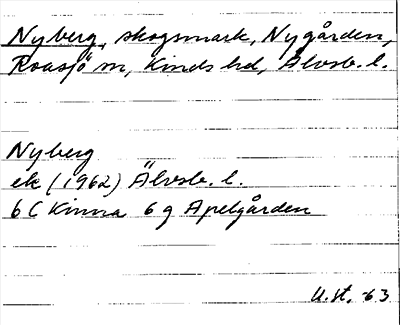 Nyberg, skogsmark, Nygården,
Roasjö sn, Kinds hd, Älvsb. l.
Nyberg
ek (1962) Älvsb. l.
6 C Kinna 6 g Apelgården
U. st. -63